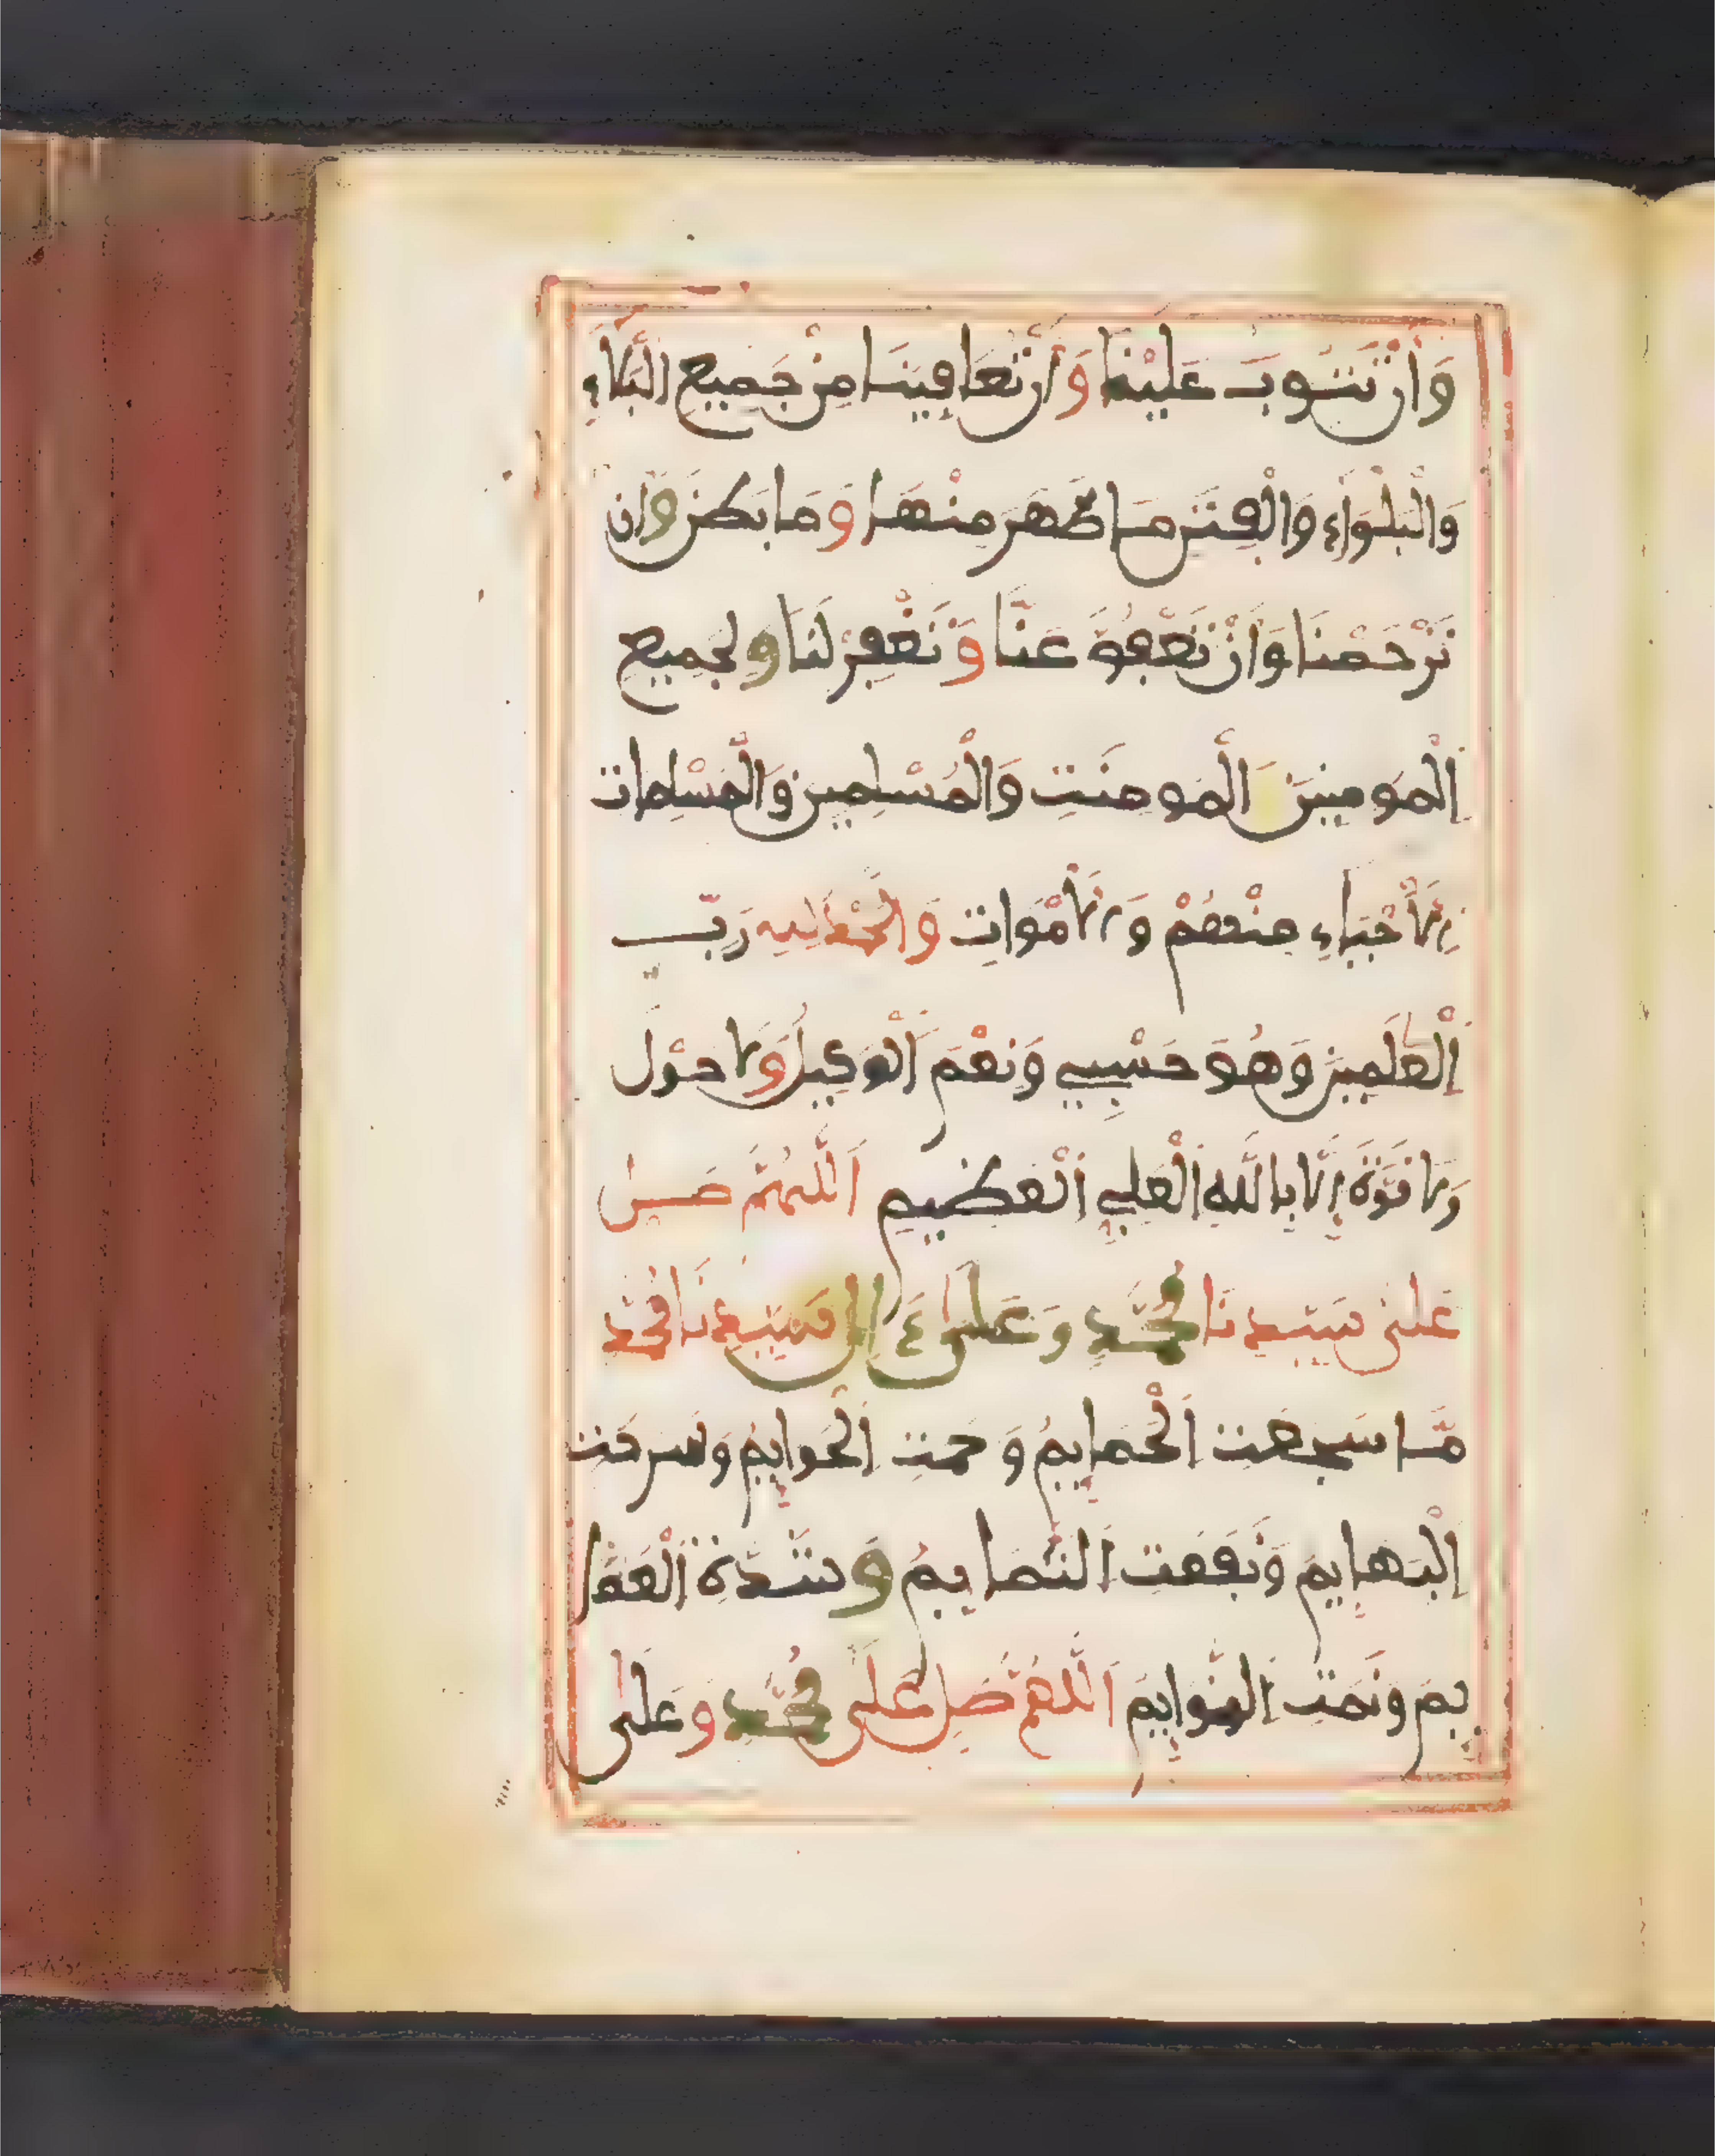 وَأَن تَتُوبَ عَلَيْنَا وَأَن تُعَافِيَنَا مِنْ جَمِيعِ الْبَلَاءِ
وَالْبَلْوَاءِ وَالْفِتَنِ مَا ظَهَرَ مِنْهَا وَمَا بَطَنَ وَأَن
تَرْحَمْنَا وَأَنْ تَعْفُوَ عَنَّا وَتَغْفِرْ لَنَا وَلِجَمِيعِ
الْمُومِنِينَ الْمُومِنَتِ وَالْمُسْلِمِينَ وَالْمُسْلِمَاتِ
الْأَحْيَاءِ مِنْهُمْ وَالْأَمْوَاتِ وَالْحَمْدُ لِلهِ رَبِّ
الْعَلَمِينَ وَهُوَ حَسْبِي وَنِعْمَ الْوَكِيلُ وَلَا حَوْلَ
وَلَا قُوَّةَ إِلَّا بِاللَّهِ الْعَلِيِّ الْعَظِيمِ اللَّهُمَّ صَلِّ
عَلَى سَيِّدِنَا مُحَمَّدٍ وَعَلَى ءَالِ سَيِّدِنَا مُحَمَّد
مَّا سَجَعَتِ الْحَمَايِمُ وَحَمَتِ الْحَوَايِمُ وَسَرَحَتِ
الْبَهَايِمُ وَنَفَعَتِ التَّمَايِمُ وَشُدَّةِ الْعَمَا
يِمُ وَنَمَتِ النَّوَايِمُ اللَّهُمَّ صَلِّ عَلَى مُحَمَّدٍ وَعَلَى